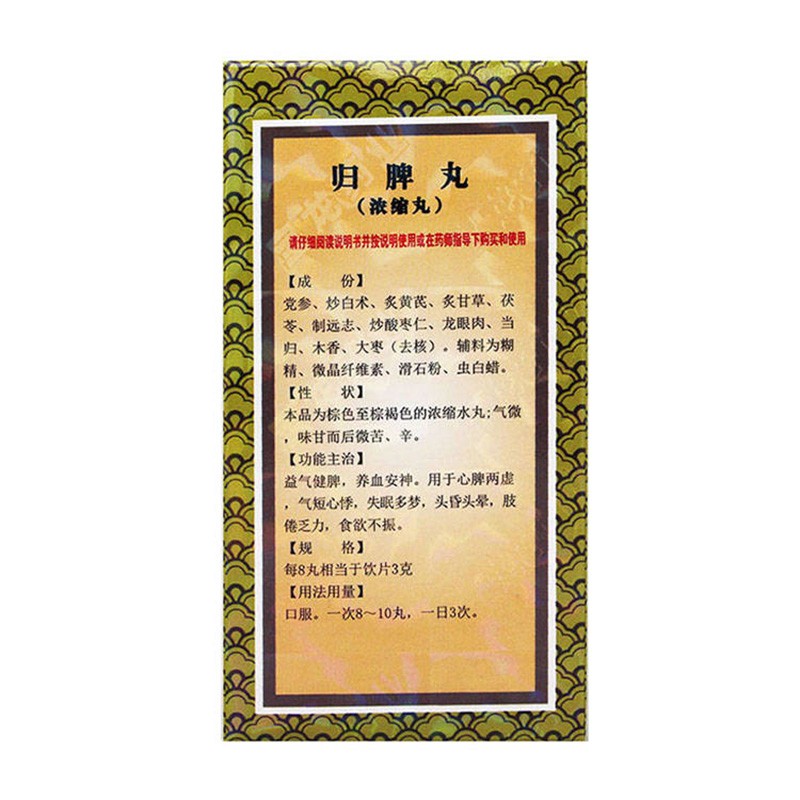 归脾丸
（浓缩丸）
请仔细阅读说明书并按说明使用或在药师指导下购买和使用
【成　份】
党参、炒白术、炙黄芪、炙甘草、茯
苓、制远志、炒酸枣仁、龙眼肉、当
归、木香、大枣（去核）。辅料为糊
精、微晶纤维素、滑石粉、虫白蜡。
【性　状】
本品为棕色至棕褐色的浓缩水丸;气微
，味甘而后微苦、辛。
【功能主治】
益气健脾，养血安神。用于心脾两虚
，气短心悸，失眠多梦，头昏头晕，肢
倦乏力，食欲不振。
【规　格】
每8丸相当于饮片3克
【用法用量】
口服。一次8～10丸，一日3次。